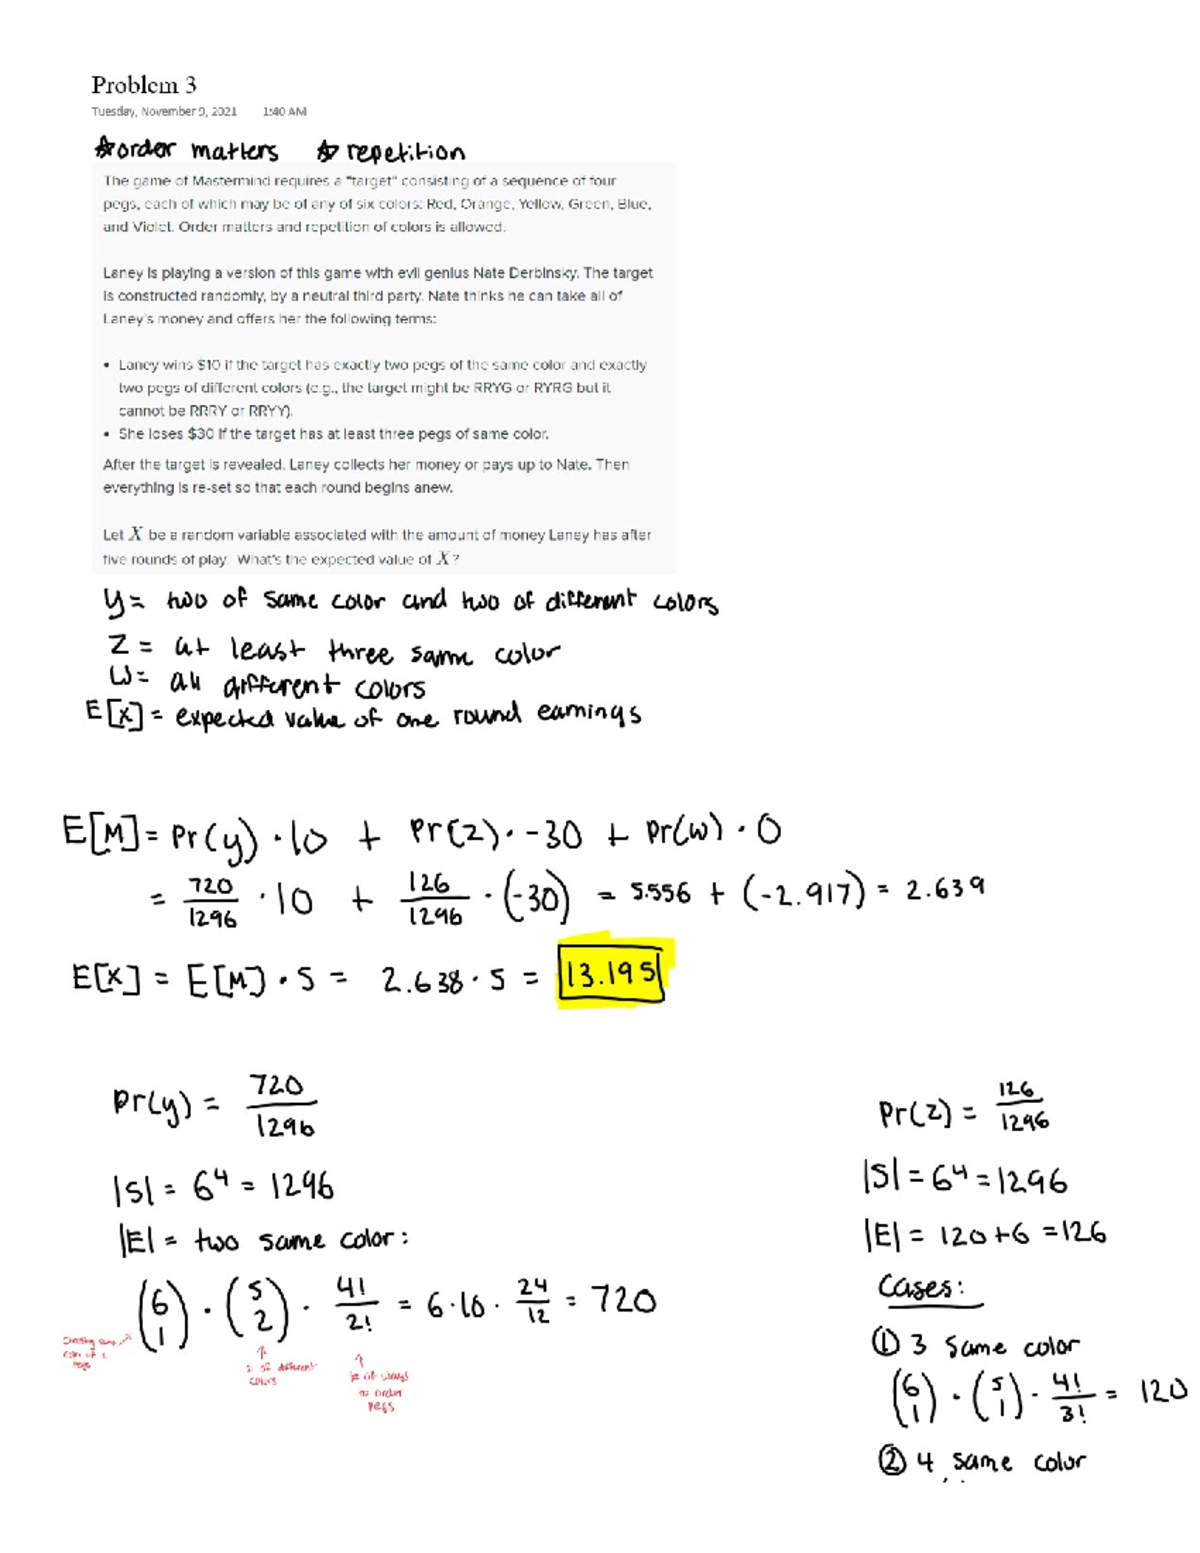 Problem 3
Tuesday, November 9, 2021 1:40 AM
☆order matters ☆ repetition
The game of Mastermind requires a "target" consisting of a sequence of four
pegs, each of which may be of any of six colors: Red, Orange, Yellow, Green, Blue,
and Violet. Order matters and repetition of colors is allowed.
Laney is playing a version of this game with evil genius Nate Derbinsky. The target
is constructed randomly, by a neutral third party. Nate thinks he can take all of
Laney's money and offers her the following terms:
• Laney wins $10 if the target has exactly two pegs of the same color and exactly
two pegs of different colors (e.g., the target might be RRYG or RYRG but it
cannot be RRRY or RRYY).
• She loses $30 if the target has at least three pegs of same color.
After the target is revealed, Laney collects her money or pays up to Nate. Then
everything is re-set so that each round begins anew.
Let X be a random variable associated with the amount of money Laney has after
five rounds of play. What's the expected value of X?
y = two of same color and two of different colors
Z = at least three same color
W = all different colors
E[X] = expected value of one round earnings
E[M] = Pr(y) · 10 + Pr(Z) · -30 + Pr(W) · 0
= 720/1296 · 10 + 126/1296 · (-30) = 5.556 + (-2.917) = 2.639
E[X] = E[M] · 5 = 2.638 · 5 = 13.195
Pr(y) = 720/1296
|S| = 6⁴ = 1296
|E| = two same color:
(6 1) · (5 2) · 4!/2! = 6·10 · 24/12 = 720
choosing same color of 2 pegs
2 of different colors
# of ways to order pegs
Pr(Z) = 126/1296
|S| = 6⁴ = 1296
|E| = 120+6 = 126
Cases:
① 3 same color
(6 1) · (5 1) · 4!/3! = 120
② 4 same color